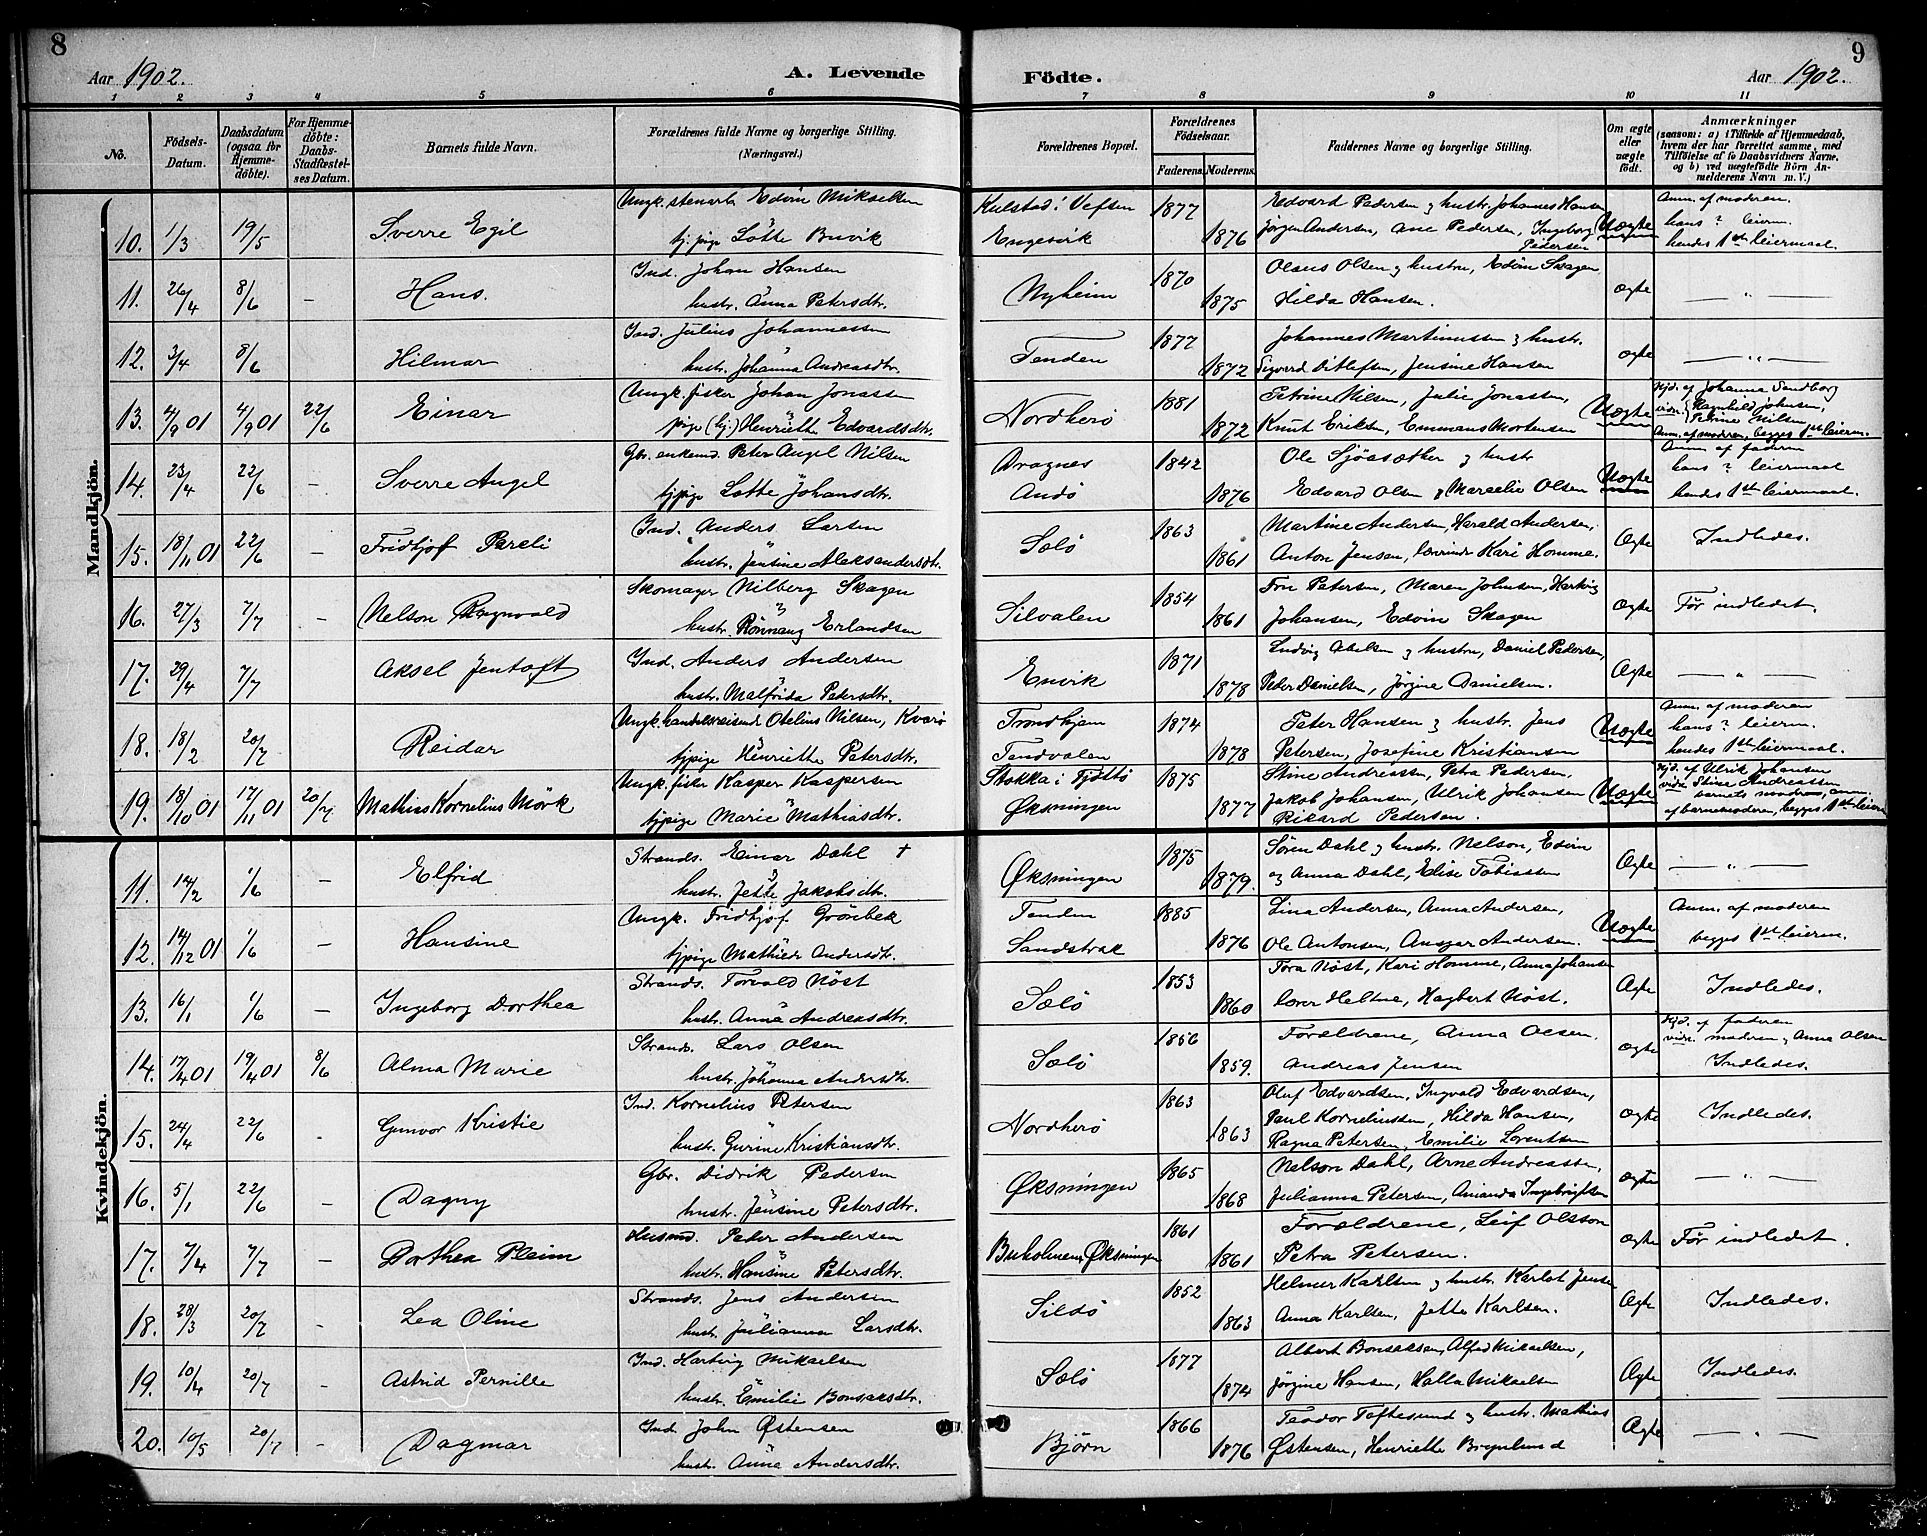 8
Aar 1902.
A. Levende
1 2 3 4 5 6
No.
Födsels-Datum.
Daabsdatum (ogsaa for Hjemme-döbte).
For Hjemme-döbte: Daabs-Stadfæstel-ses Datum.
Barnets fulde Navn.
Forældrenes fulde Navne og borgerlige Stilling.
(Næringsvei.)
Mandkjön.
Ungk. stenarb. Edvin Mikselsen
10. 1/3 19/5 Sverre Egil tj. pige Lötte Buvik
Ind. Johan Hansen
11. 26/4 8/6 – Hans. hustr. Anna Petersdtr.
Ind. Julius Johannessen
12. 3/4 8/6 Hilmar hustr. Johanna Andreasdtr.
Ungk. fisker Johan Jonassen
13. 4/9 01 4/9 01 22/6 Einar pige (tj.) Henriette Edvardsdtr.
Gbr. enkemd. Peter Angel Nilsen
14. 23/4 22/6 – Sverre Angel tjpige Lotte Johansdtr.
Ind. Anders Larsen
15. 18/11 01 22/6 – Fridtjof Pareli hustr. Jensine Aleksandersdtr.
Skomager Nilberg Skagen
16. 27/3 7/7 Nelson Ragnvald hustr. Rönnaug Erlandsen
Ind. Anders Andersen
17. 29/4 7/7 Aksel Jentoft hustr. Malfrida Petersdtr.
Ungk. handelsreisende Otelius Nilsen, Kvarö
18. 18/2 20/7 Reidar tjpige Henriette Petersdtr.
Ungk. fisker Kasper Kaspersen
19. 18/10 01 17/11 01 20/7 Mathias Kornelius Mörk tjpige Marie Mathiasdtr.
Kvindekjön.
Strands. Einar Dahl †
11. 14/2 1/6 – Elfrid hustr. Jette Jakobsdtr.
Ungk. Fridtjof Grönbek
12. 14/12 01 1/6 – Hansine tjpige Mathilde Andersdtr.
Strands. Torvald Nöst
13. 16/1 1/6 – Ingeborg Dorthea hustr. Anna Andreasdtr.
Strands. Lars Olsen
14. 17/4 01 19/4 01 8/6 Alma Marie hustr. Johanna Andersdtr.
Ind. Kornelius Petersen
15. 24/4 22/6 – Gunvor Kristie hustr. Gurine Kristiansdtr.
Gbr. Didrik Pedersen
16. 5/1 22/6 – Dagny hustr. Jensine Petersdtr.
Husmd. Peder Andersen
17. 7/4 7/7 – Dorthea Pleim hustr. Hansine Petersdtr.
Strands. Jens Andersen
18. 28/3 20/7 – Lea Oline hustr. Julianna Larsdtr.
Ind. Hartvig Mikaelsen
19. 10/4 20/7 – Astrid Pernille hustr. Emilie Bonsaksdtr.
Ind. John Østensen
20. 10/5 20/7 – Dagmar hustr. Anna Andersdtr.
9
Födte.
Aar 1902.
7 8 9 10 11
Forældrenes Bopæl.
Forældrenes Födselsaar.
Faderens. Moderens.
Faddernes Navne og borgerlige Stilling.
Om ægte eller uægte födt.
Anmærkninger
(saasom: a) i Tilfælde af Hjemmedaab, hvem der har forrettet samme, med Tilföielse af to Daabsvidners Navne, og b) ved uægtefödte Börn An-melderens Navn m. V.)
Kulstad i Vefsen 1877 Edvard Pedersen og hustr. Johannes Hansen Anm. af moderen.
Engesvik 1876 Jörgen Andersen, Ane Pedersen, Ingeborg Pedersen Uægte hans ? leierm. hendes 1ste leiermaal
Nyheim 1870 Olaus Olsen og hustru, Edvin Skagen,
1875 Hilda Hansen. ægte – " –
Tenden 1877 Johannes Martinussen og hustr.
1872 Sigvard Ditlefsen, Jensine Hansen ægte – " –
Nordherö 1881 Petrine Nilsen, Julie Jonassen, Hjd. af Johanna Sandborg
1872 Knut Eriksen, Emmans Mortensen Uægte vidn. Ragnhild Johnsen, Petrine Nilsen
Anm. af moderen, begges 1ste leierm.
Dragnes 1842 Ole Sjösæther og hustr Anm. af faderen
Andö 1876 Edvard Olsen og Marcelie Olsen Uægte hans ? leiermaal hendes 1ste leiermaal.
Sælö 1863 Martine Andersen, Harald Andersen,
1861 Anton Jensen, lærerinde Kari Homme. Ægte Indledes.
Silvalen 1854 Fru Petersen, Maren Johnsen, Hartvig
1861 Johansen, Edvin Skagen ægte Før indledet.
Envik 1871 Ludvig Abelsen og hustru, Daniel Pedersen,
1878 Peter Danielsen, Jörgine Danielsen. Ægte – " –
Trondhjem 1874 Peter Hansen og hustr. Jens Anm. af moderen
Tendvalen 1878 Petersen, Josefine Kristiansen Uægte hans ? leierm. hendes 1ste leiermaal.
Stokka i Tjöttö 1875 Stine Andreassen, Petra Pedersen, Hjd. af Ulrik Johansen
Øksningen 1877 Jakob Johansen, Ulrik Johansen Uægte vidn. Stine Andreassen
Rikard Pedersen. barnets moder, anm. af barnemoderen, begges 1ste leierm
Øksningen 1875 Sören Dahl og hustr. Nelson, Edvin
1879. og Anna Dahl, Elise Tobiassen Ægte – " –
Tenden 1885 Lina Andersen, Anna Andersen, Anm. af moderen
Sandstrak 1876 Ole Antonsen, Ansgar Andersen. Uægte begges 1ste leierm.
Sælö 1853 Tora Nöst, Kari Homme, Anna Johansen
1860 lærer Heltne, Hagbert Nöst. Ægte Indledes.
Sælö 1856 Forældrene, Anna Olsen. Hjd. af faderen
1859. Andreas Jensen ægte vidn. moderen og Anna Olsen Indledes.
Nordherö 1863 Oluf Edvardsen, Ingvald Edvardsen,
1863 Paul Korneliussen, Hilda Hansen, ægte Indledes.
Ragna Petersen, Emilie Lorentsen
Øksningen 1865 Nelson Dahl, Arne Andreassen,
1868 Julianna Petersen, Amanda Ingebrigtsen ægte – " –
Buholmen, Øksningen 1861 Forældrene, Leif Olsson
1861 Petra Petersen. ægte Før indledet.
Sildö 1852 Helmer Karlsen og hustr. Karlot Jensen
1863 Anna Karlsen, Jette Karlsen. Ægte Indledes.
Sælö 1877 Albert Bonsaksen, Alfred Mikaelsen,
1874 Jörgine Hansen, Halla Mikaelsen Ægte Indledes.
Björn 1866 Teodor Toftesund og hustr. Mathias
1876 Østensen, Henriette Brynlund Ægte – " –